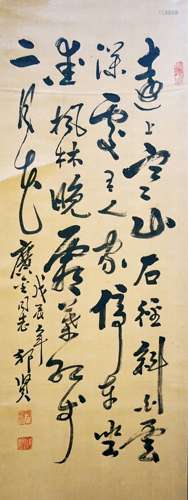 遠上寒山石徑斜白雲
深處有人家停車坐
愛楓林晚霜葉紅於
二月花
戊辰年
同志